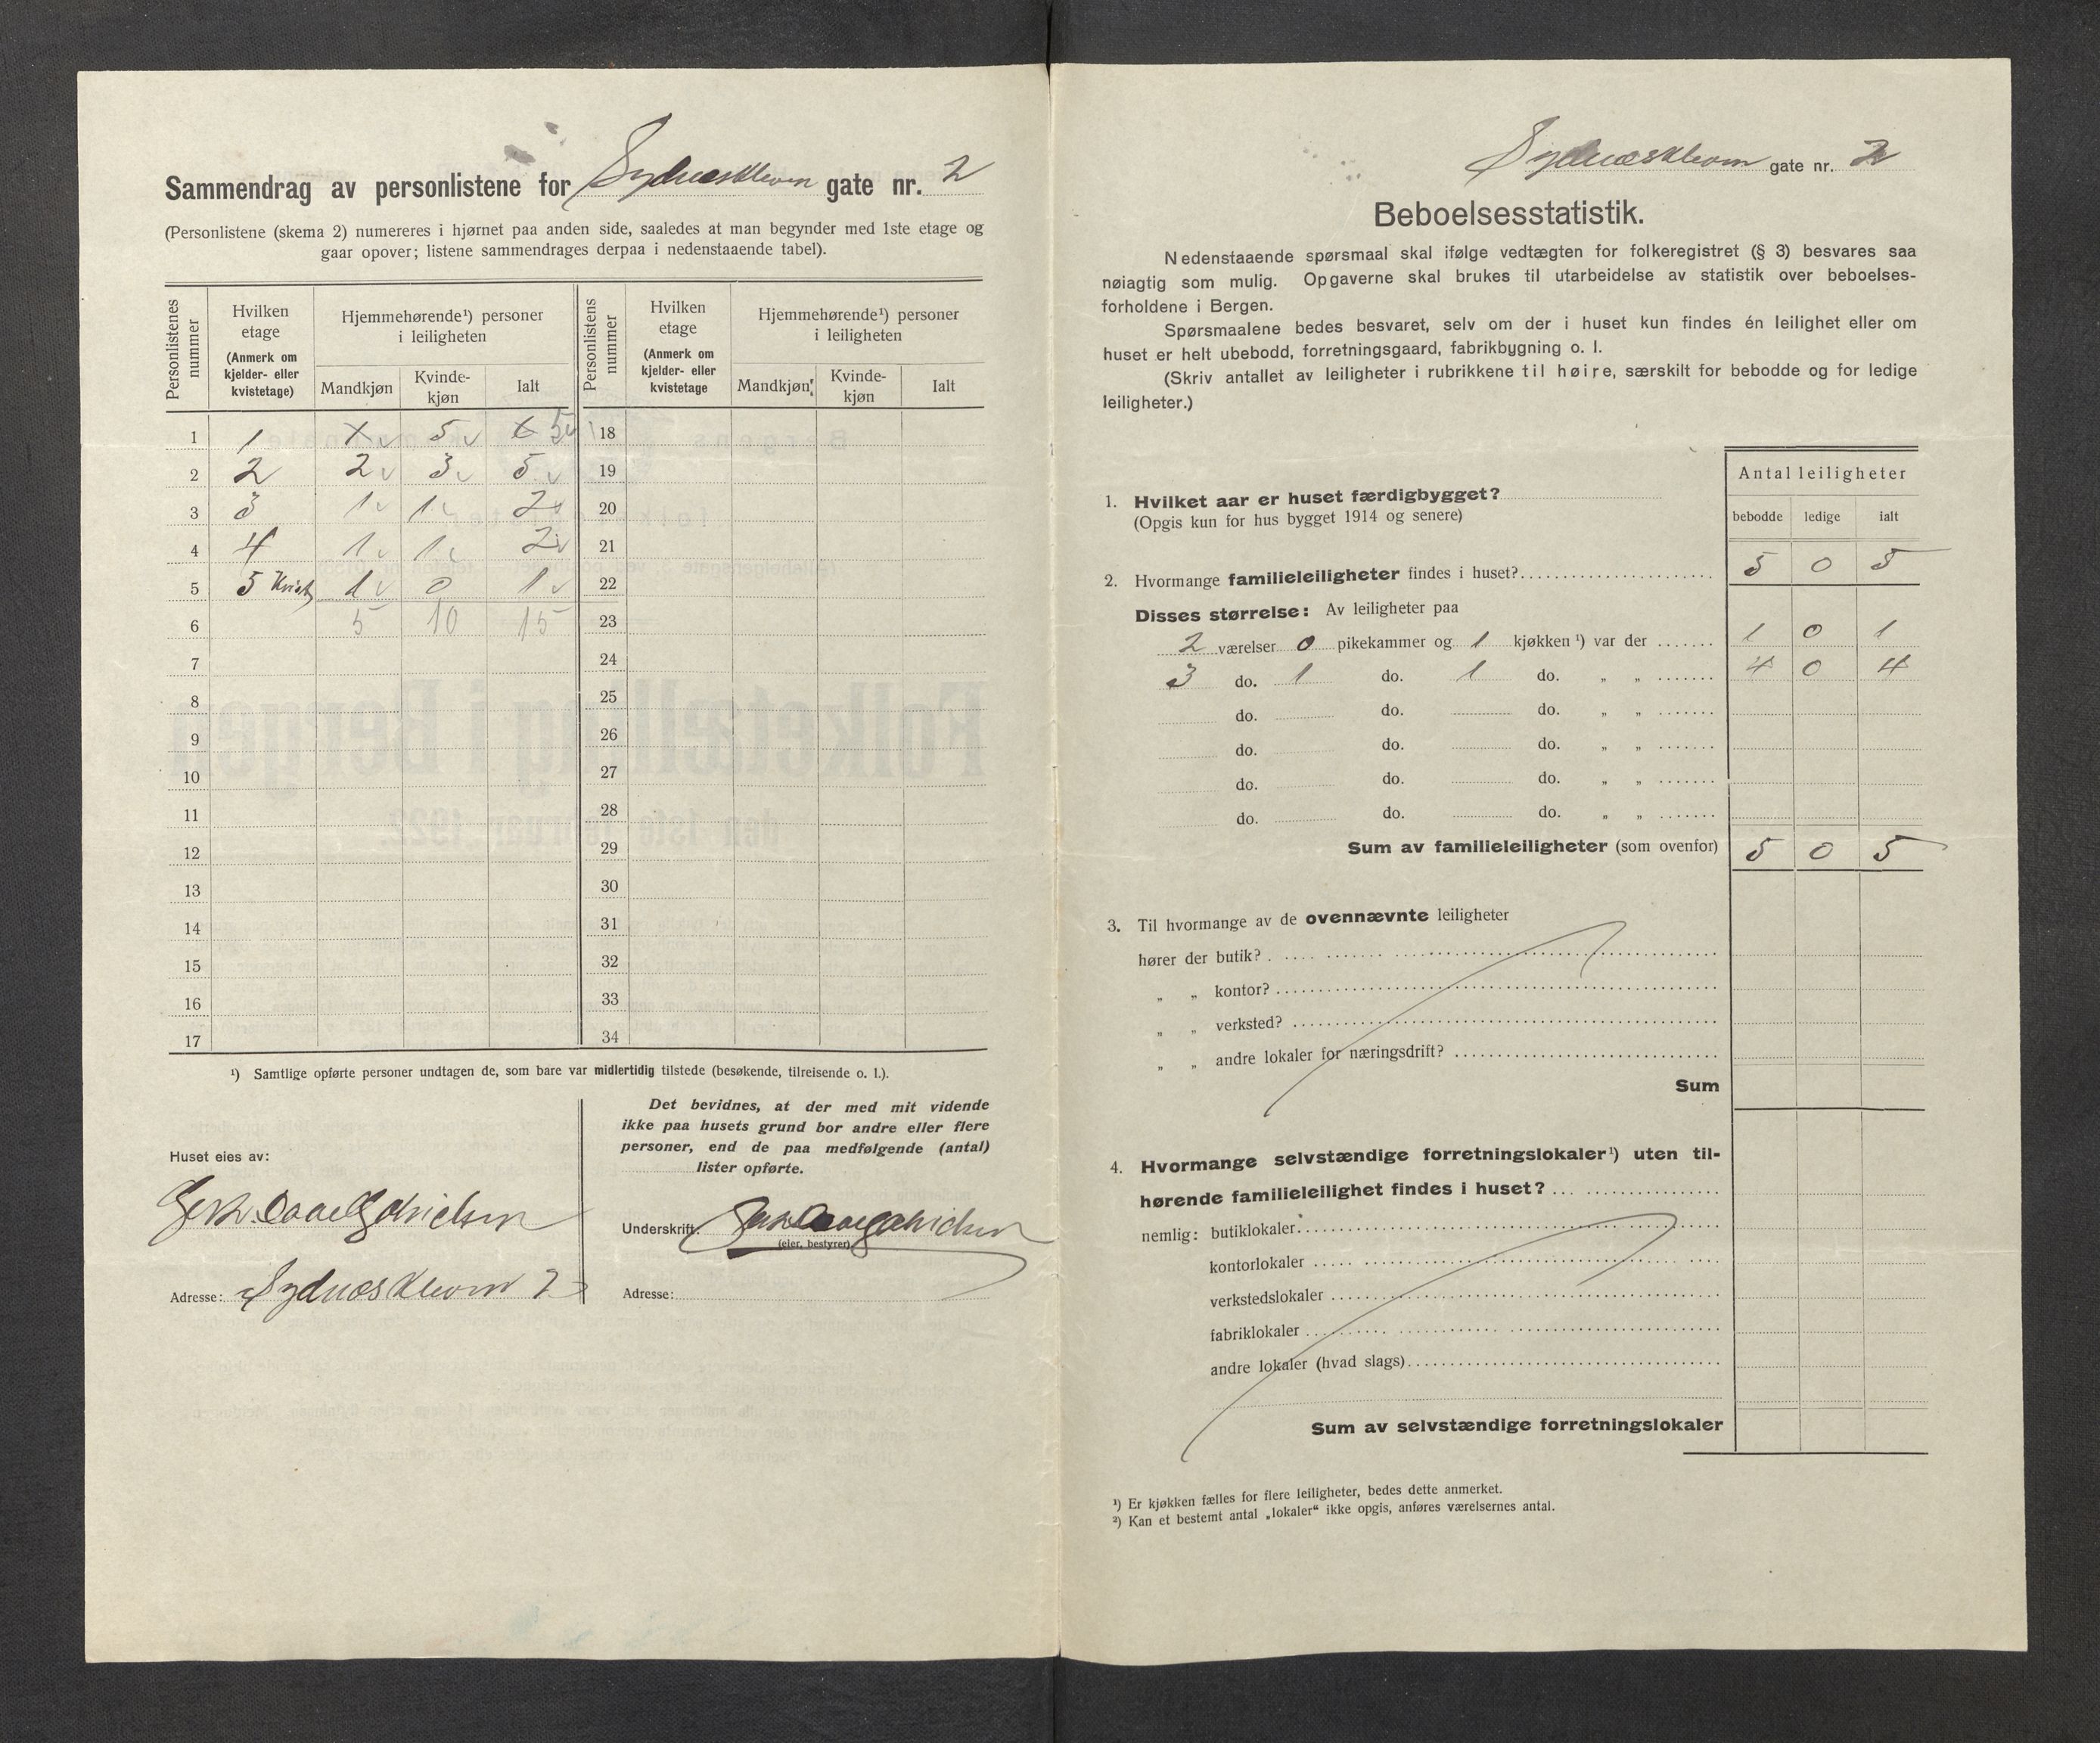 Sammendrag av personlistene for Sydneskleven gate nr. 2
(Personlistene (skema 2) numereres i hjørnet paa anden side, saaledes at man begynder med 1ste etage og
gaar opover; listene sammendrages derpaa i nedenstaaende tabel).
Personlistenes nummer
Hvilken etage (Anmerk om kjelder- eller kvistetage)
Hjemmehørende¹) personer i leiligheten
Mandkjøn Kvinde-kjøn Ialt
Personlistens nummer
Hvilken etage (Anmerk om kjelder- eller kvistetage
Hjemmehørende¹) personer i leiligheten
Mandkjøn Kvinde-kjøn Ialt
1 1 5 6 5 18
2 2 2 3 5 19
3 3 1 1 2 20
4 4 1 1 2 21
5 5 Kvist 1 0 1 22
6 5 10 15 23
7 24
8 25
9 26
10 27
11 28
12 29
13 30
14 31
15 32
16 33
17 34
¹) Samtlige opførte personer undtagen de, som bare var midlertidig tilstede (besøkende, tilreisende o. l.).
Huset eies av:
Adresse: Sydneskleven 2
Det bevidnes, at der med mit vidende
ikke paa husets grund bor andre eller flere
personer, end de paa medfølgende (antal)
lister opførte.
Underskrift:
(eier, bestyrer)
Adresse:
Sydneskleven gate nr. 2
Beboelsesstatistik.
Nedenstaaende spørsmaal skal ifølge vedtægten for folkeregistret (§ 3) besvares saa
nøiagtig som mulig. Opgaverne skal brukes til utarbeidelse av statistik over beboelses-
forholdene i Bergen.
Spørsmaalene bedes besvaret, selv om der i huset kun findes én leilighet eller om
huset er helt ubebodd, forretningsgaard, fabrikbygning o. l.
(Skriv antallet av leiligheter i rubrikkene til høire, særskilt for bebodde og for ledige
leiligheter.)
Antal leiligheter
bebodde ledige ialt
1. Hvilket aar er huset færdigbygget?
(Opgis kun for hus bygget 1914 og senere)
2. Hvormange familieleiligheter findes i huset? 5 0 5
Disses størrelse: Av leiligheter paa
2 værelser 0 pikekammer og 1 kjøkken ¹) var der 1 0 1
3 do. 1 do. 1 do. „ „ 4 0 4
do. do. do. „ „
do. do. do. „ „
do. do. do. „ „
do. do. do. „ „
Sum av familieleiligheter (som ovenfor) 5 0 5
3. Til hvormange av de ovennævnte leiligheter
hører der butik?
„ „ kontor?
„ „ verksted?
„ „ andre lokaler for næringsdrift?
Sum
4. Hvormange selvstændige forretningslokaler¹) uten til-
hørende familieleilighet findes i huset?
nemlig: butiklokaler
kontorlokaler
verkstedslokaler
fabriklokaler
andre lokaler (hvad slags)
Sum av selvstændige forretningslokaler
¹) Er kjøkken fælles for flere leiligheter, bedes dette anmerket.
²) Kan et bestemt antal „lokaler“ ikke opgis, anføres værelsernes antal.